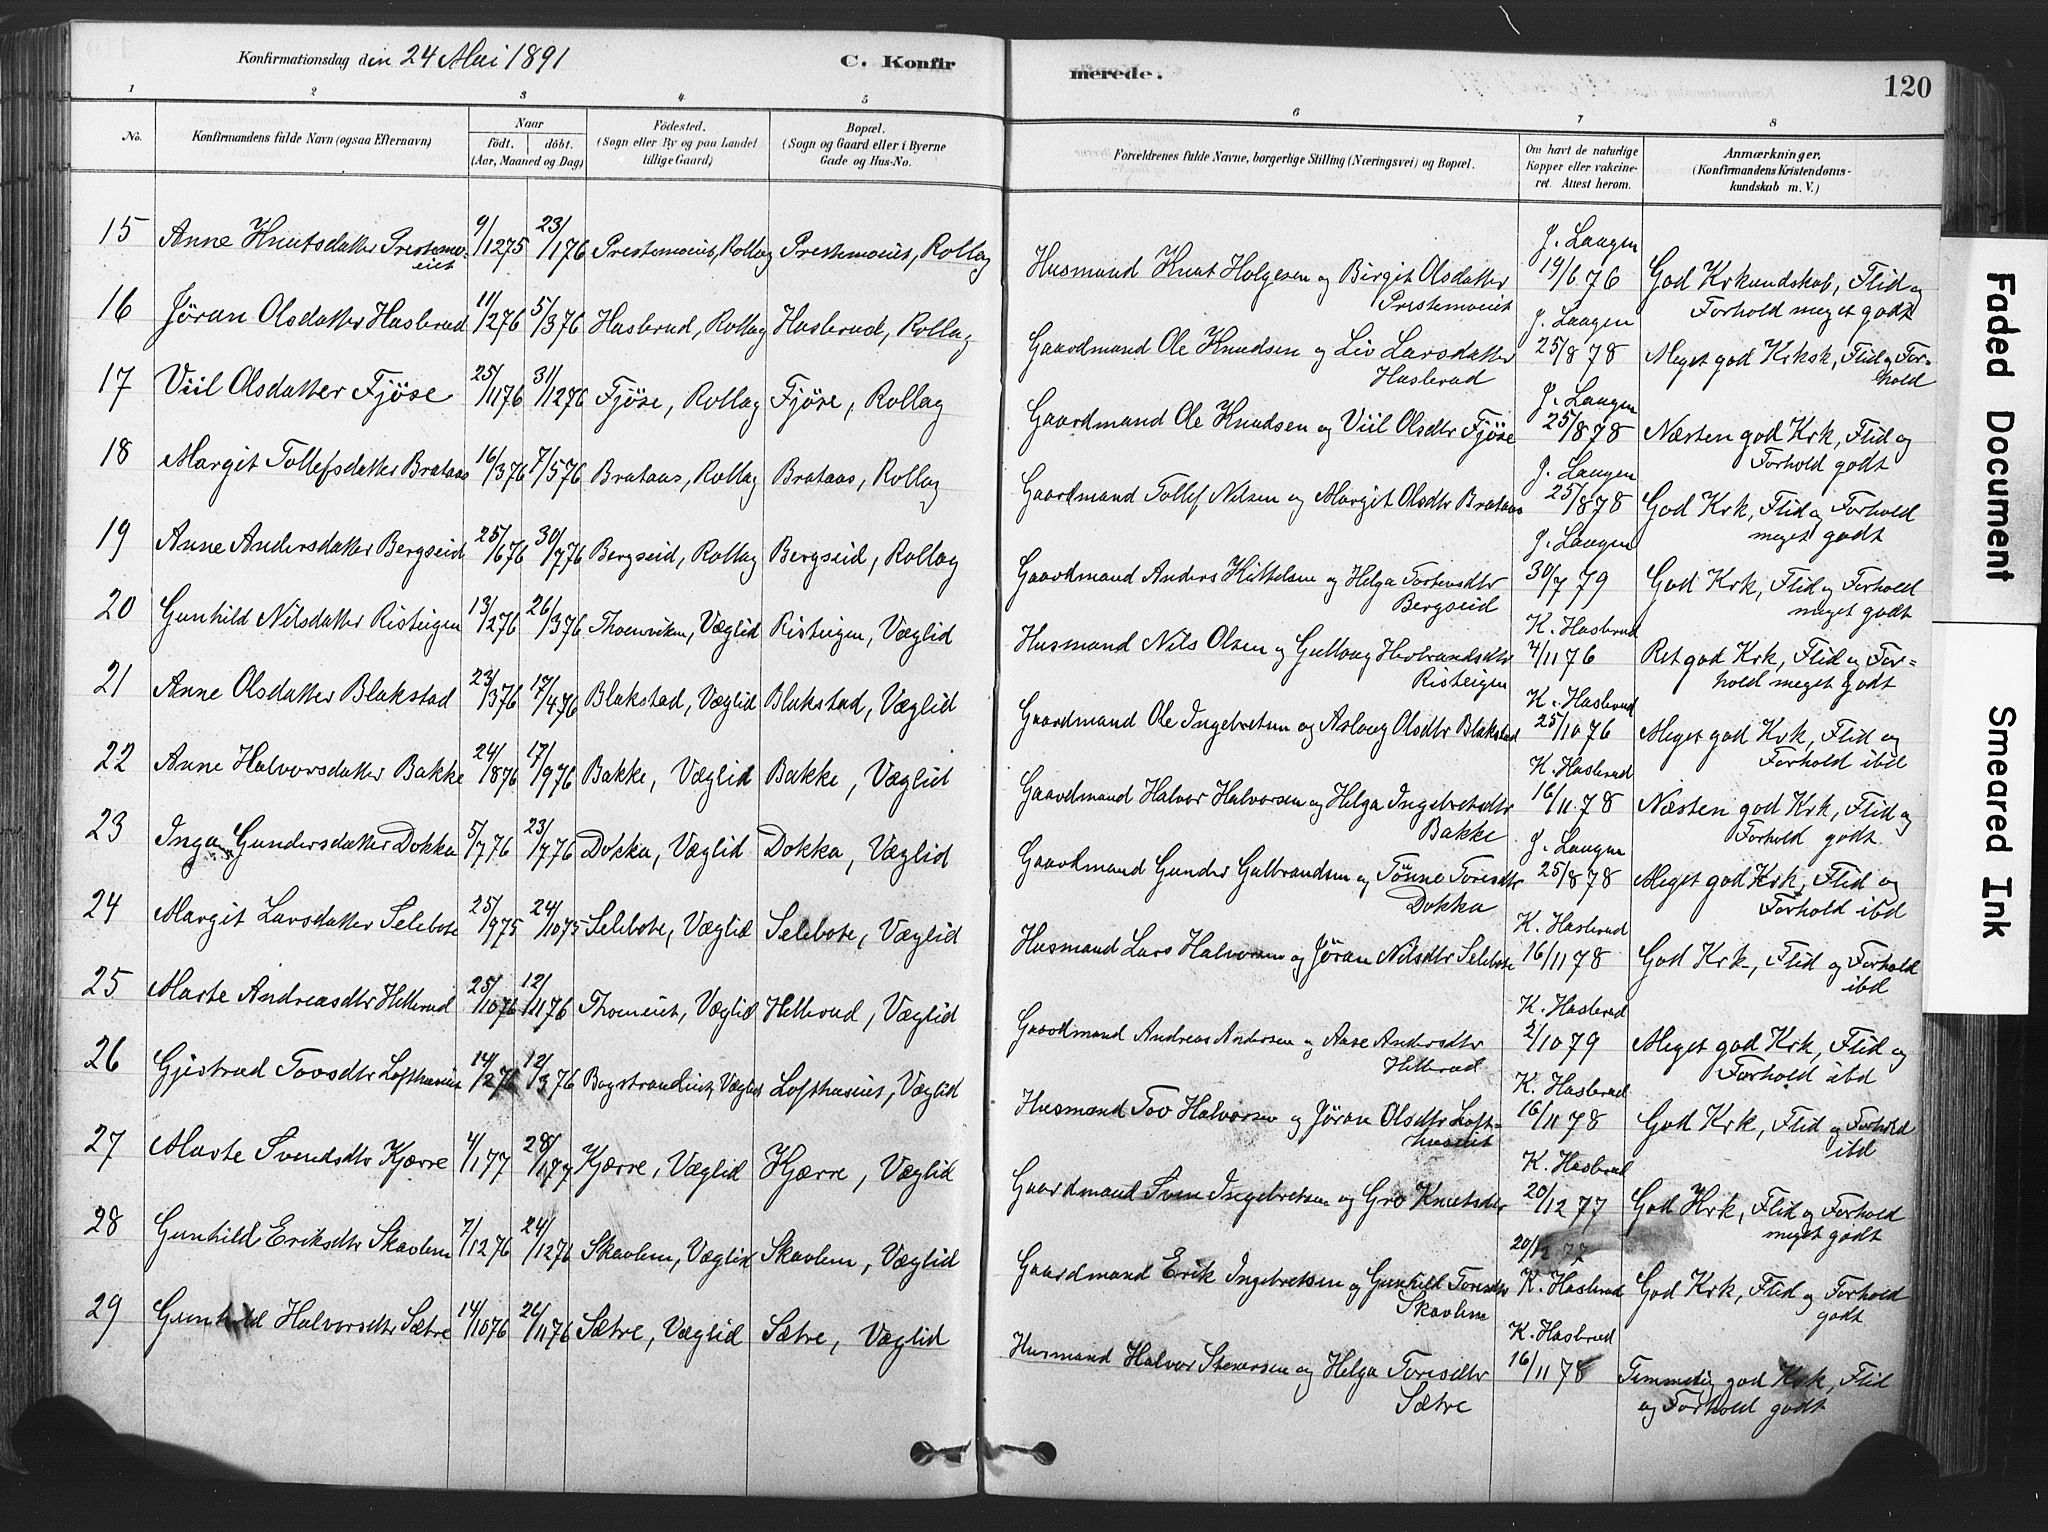 Konfirmationsdag den 24 Mai 1891
C. Konfir
merede.
120
1 2 3 4 5 6 7 8
No. Konfirmandens fulde Navn (ogsaa Efternavn) Naar födt. döbt. (Aar, Maaned og Dag) Födested. (Sogn eller By og paa Landet tillige Gaard) Bopæl. (Sogn og Gaard eller i Byerne Gade og Hus-No. Forældrenes fulde Navne, borgerlige Stilling (Næringsvei) og Bopæl. Om havt de naturlige Kopper eller vakcineret. Attest herom. Anmærkninger. (Konfirmandens Kristendomskundskab m. V.)
15 Anne Knutsdatter Prestemoeiet 9/1275 23/176 Prestemoeiet, Rollag Prestemoeiet, Rollag Husmand Knut Holgesen og Birgit Olsdatter Prestemoeiet J. Laagen 19/6.76 God Krkundskab, Flid og Forhold meget godt
16 Jøran Olsdatter Hasberud 11/276 5/376 Hasberud, Rollag Hasberud, Rollag Gaardmand Ole Knudsen og Liv Larsdatter Hasberud J. Laagen 25/878 Meget god Krksk, Flid og Forhold
17 Viil Olsdatter Fjöse 25/1176 31/1276 Fjöse, Rollag Fjöse, Rollag Gaardmand Ole Knudsen og Viil Olsdtr Fjöse J. Laagen 25/878 Næsten god Krk, Flid og Forhold godt
18 Margit Tollefsdatter Brataas 16/376 7/576 Brataas, Rollag Brataas, Rollag Gaardmand Tollef Nilsen og Margit Olsdtr Brataas J. Laagen 25/878 God Krk, Flid og Forhold meget godt
19 Anne Andersdatter Bergseid 25/676 30/776 Bergseid, Rollag Bergseid, Rollag Gaardmand Anders Kittelsen og Helga Torstensdtr Bergseid J. Laagen 30/7 79 God Krk, Flid og Forhold meget godt
20 Gunhild Nilsdatter Risteigen 13/276 26/376 Thoenviken, Væglid Risteigen, Væglid Husmand Nils Olsen og Gullaug Herbrandsdtr Risteigen K. Hasberud 4/1176 Ret god Krk, Flid og Forhold meget godt
21 Anne Olsdatter Blakstad 23/376 17/476 Blakstad, Væglid Blakstad, Væglid Gaardmand Ole Ingebretsen og Aslaug Olsdtr Blakstad K. Hasberud 25/1076 Meget god Krk, Flid og Forhold ibd
22 Anne Halvorsdatter Bakke 24/876 17/976 Bakke, Væglid Bakke, Væglid Gaardmand Halvor Halvorsen og Helga Ingebretsdtr Bakke K. Hasberud 16/11.78 Næsten god Krk, Flid og Forhold godt
23 Inga Gundersdatter Dokka 5/776 23/776 Dokka, Væglid Dokka, Væglid Gaardmand Gunder Gulbrandsen og Tönne Toresdtr Dokka J. Laagen 25/878 Meget god Krk, Flid og Forhold ibd
24 Margit Larsdatter Selebote 25/975 24/1075 Selebote, Væglid Selebote, Væglid Husmand Lars Halvorsen og Jøran Nilsdtr Selebote K. Hasberud 16/1178 God Krk, Flid og Forhold ibd
25 Marte Andreasdtr Hellerud 25/1076 12/1176 Thomeiet, Væglid Hellerud, Væglid Gaardmand Andreas Andersen og Aase Andersdtr Hellerud K. Hasberud 2/1079 Meget god Krk, Flid og Forhold ibd
26 Gjertrud Tovsdtr Lofthuseiet 14/276 12/376 Bogstrandeiet, Væglid Lofthuseiet, Væglid Husmand Tov Halvorsen og Jøran Olsdtr Lofthuseiet K. Hasberud 16/1178 God Krk, Flid og Forhold ibd
27 Marte Svendsdtr Kjærre 4/177 28/177 Kjærre, Væglid Kjærre, Væglid Gaardmand Sven Ingebretsen og Gro Knutsdtr K. Hasberud 20/1277 God Krk, Flid og Forhold meget godt
28 Gunhild Eriksdtr Skavlem 7/1276 24/1276 Skavlem, Væglid Skavlem, Væglid Gaardmand Erik Ingebretsen og Gunhild Toresdtr Skavlem 20/12 77 K. Hasberud God Krk, Flid og Forhold godt
29 Gunhild Halvorsdtr Sætre 14/1076 26/1176 Sætre, Væglid Sætre, Væglid Husmand Halvor Stenersen og Helga Toresdtr Sætre K. Hasberud 16/1178 Temmelig god Krk, Flid og Forhold godt
Faded Document
Smeared Ink